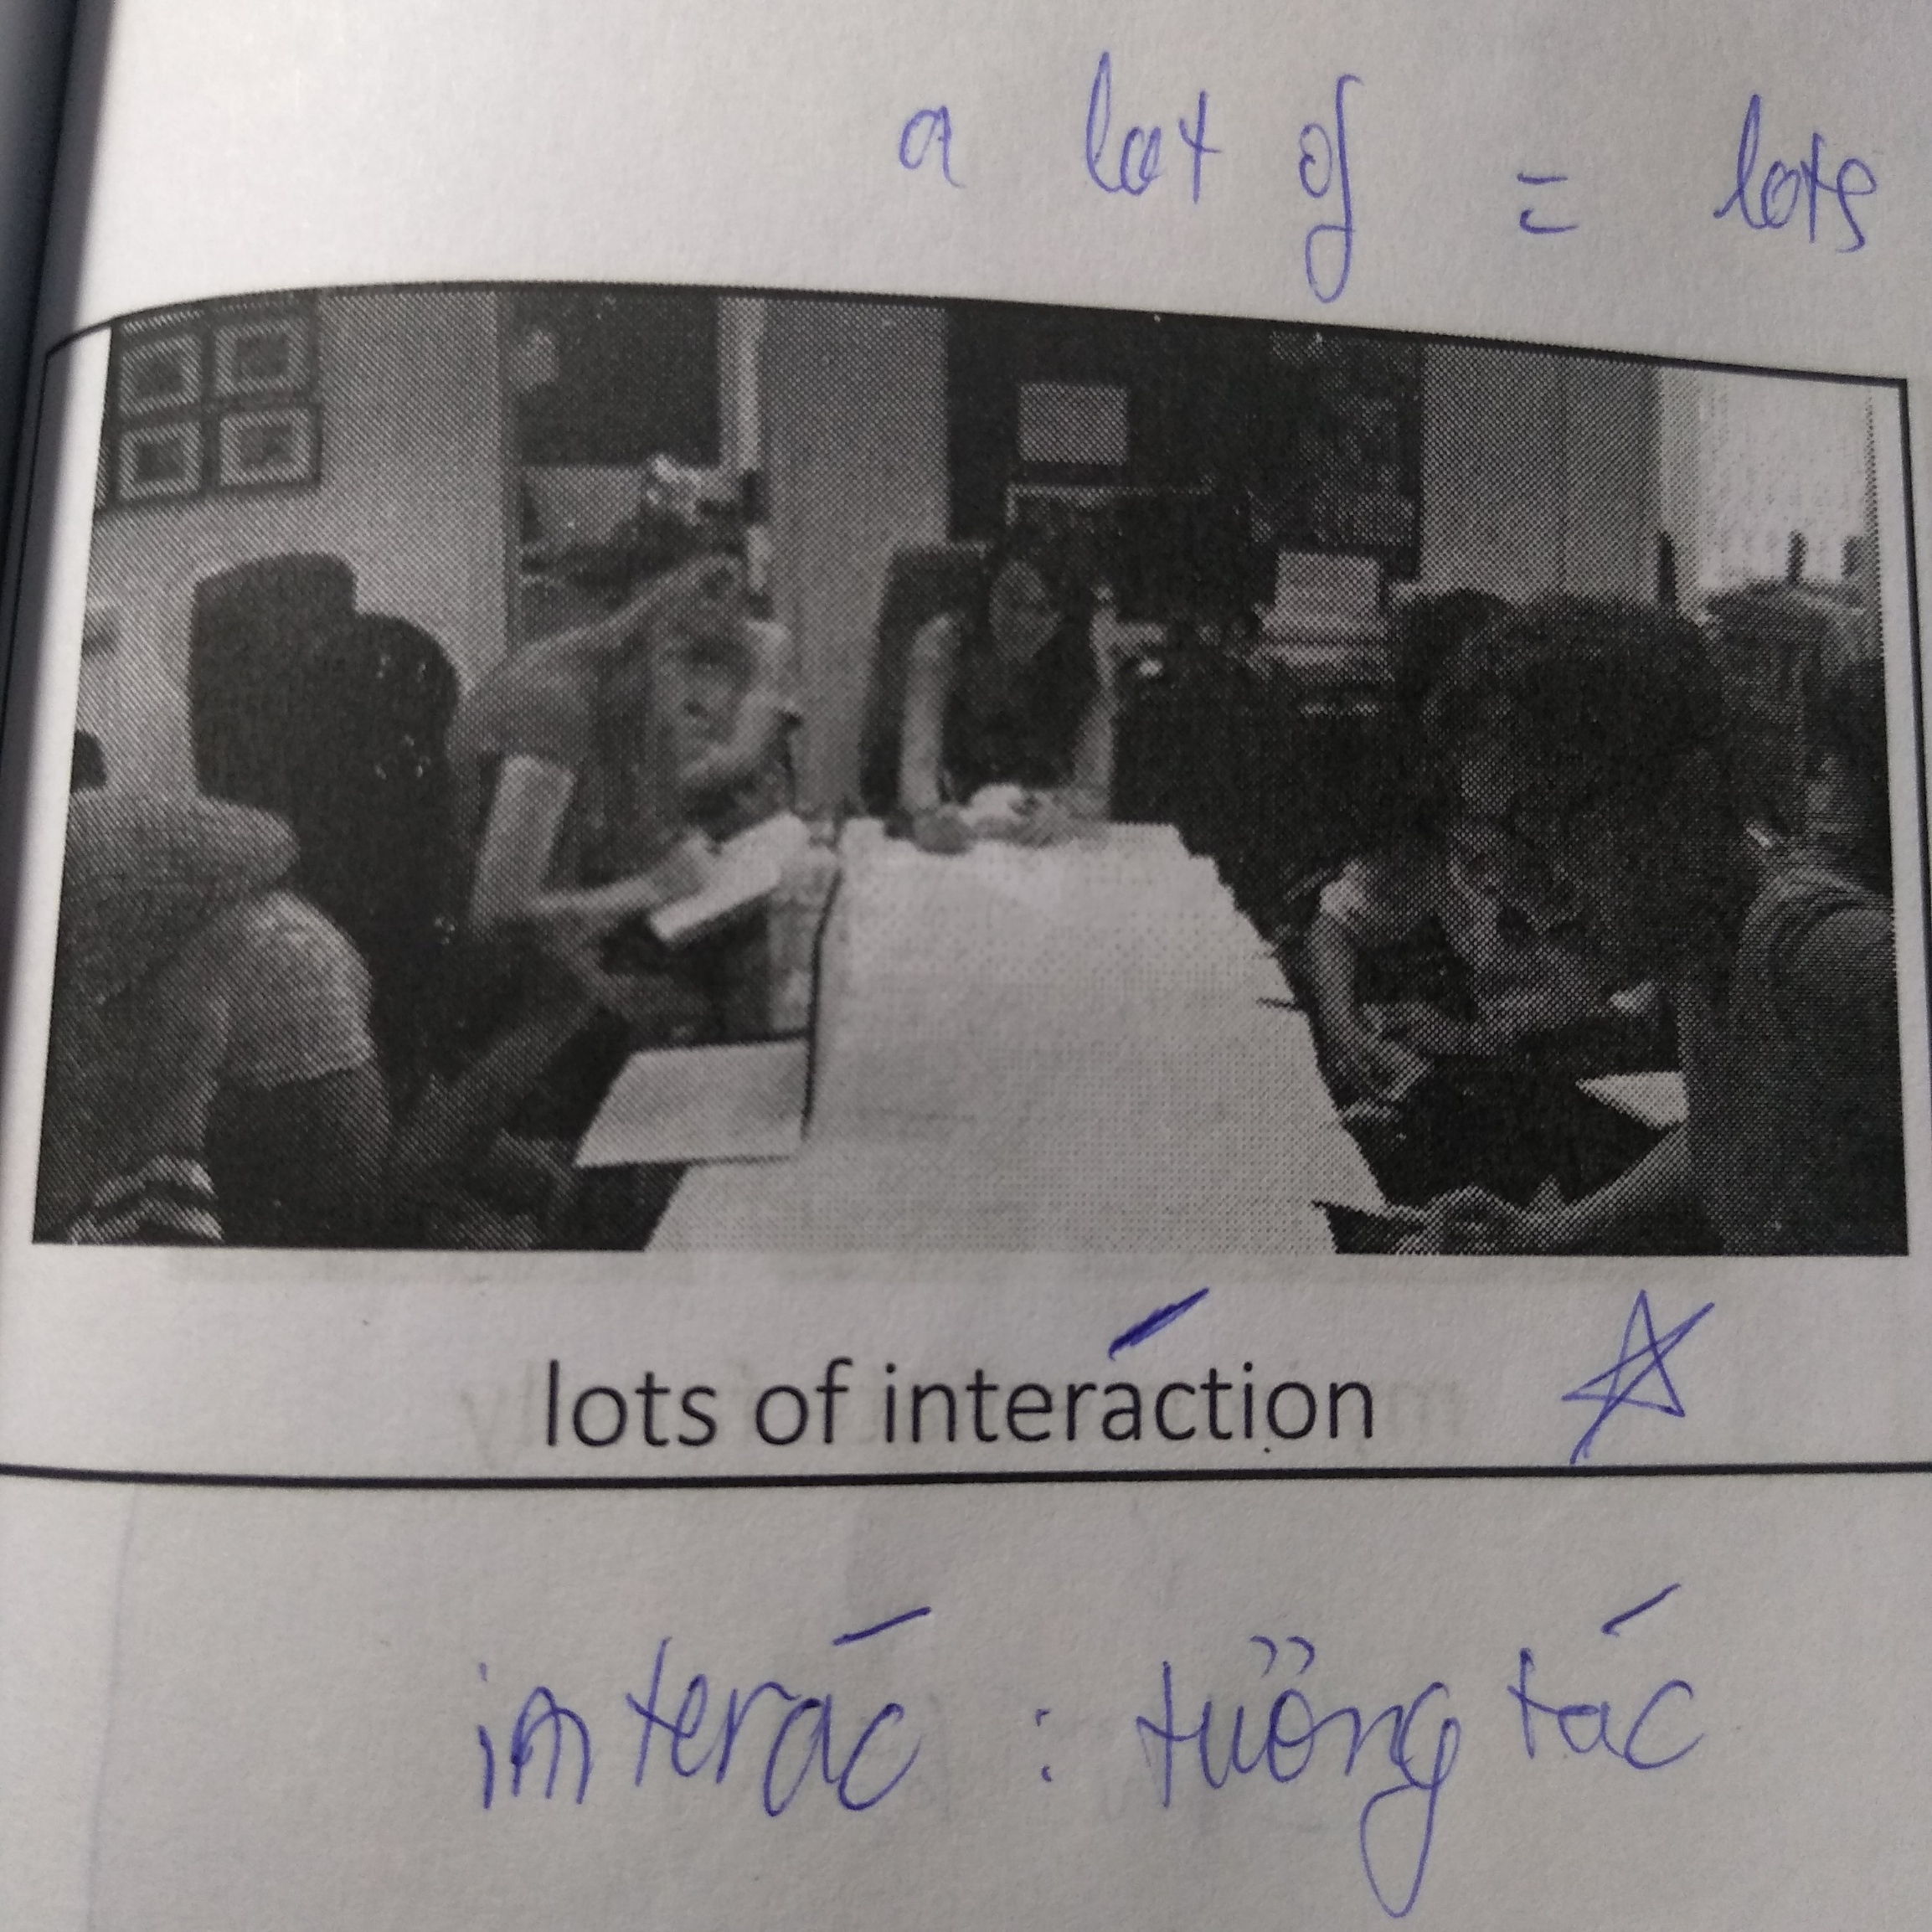 a lot of = lots
lots of interaction
interác : tương tác